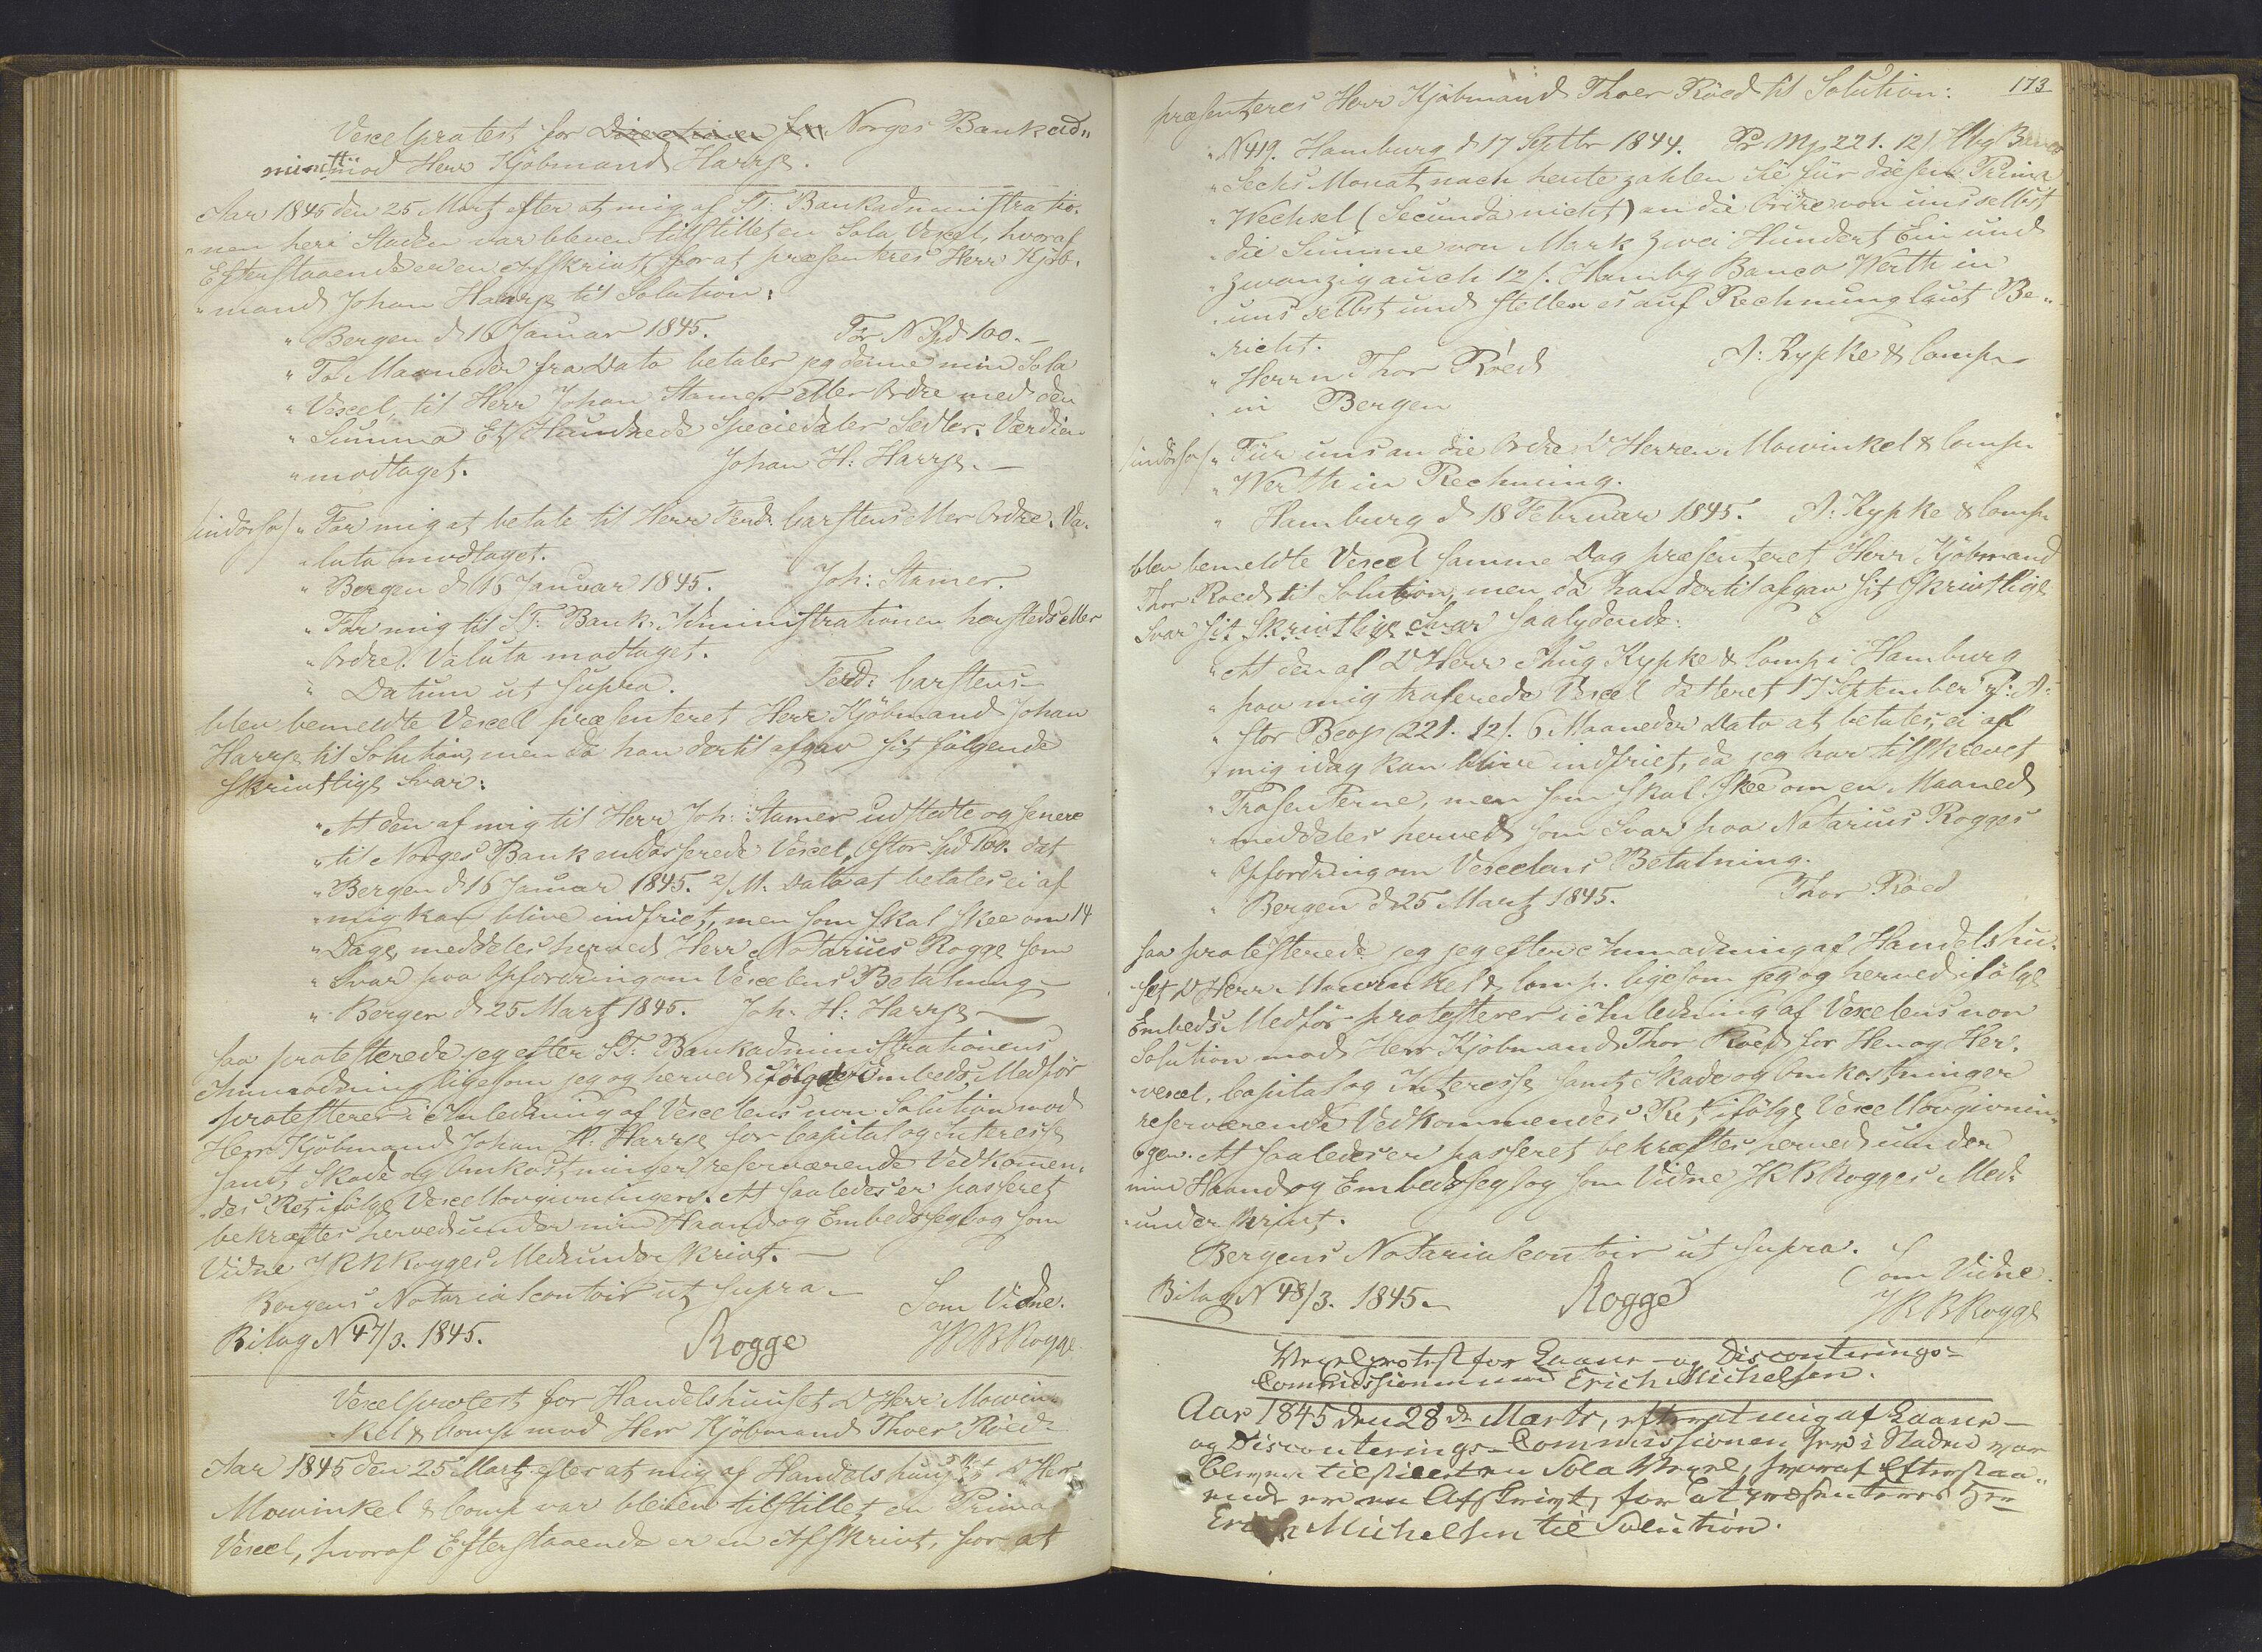 Vexelprotest for Directionen for Norges Bankad„
minst: mod Herr Kjöbmand Harrje.
Aar 1845 den 25 Martz efter at mig af St: Bankadministratio„
„nen her i Staden var bleven tilstillet en Sola Vexel, hvoraf
Efterstaaende er en Afskrivt, for at præsenteres Herr Kjöb„
„mand Johan Harrje til Solution:
„ Bergen d 16 Januar 1845. For N Spd 100.–
„ To Maaneder fra Dato betaler jeg denne min Sola
„ Vexel, til Herr Johan Stamer eller Ordre med den
„ Summa Et Hundrede Speciedaler Sedler. Værdien
„ modtaget. Johan H: Harrje.–
/indorso/ „ For mig at betale til Herr Ferd: Carstens eller Ordre. Va„
„ luta modtaget.
„ Bergen d 16 Januar 1845. Joh: Stamer.
„ For mig til S.T. Bank-Administrationen hersteds eller
„ Ordre. Valuta modtaget.
„ Datum ut supra. Ferd: Carstens–
blev bemeldte Vexel præsenteret Herr Kjöbmand Johan
Harrje til Solution, men da han dertil afgav sit fölgende
skrivtlige Svar:
„ At den af mig til Herr Joh: Stamer udstedte og senere
„ til Norges Bank endosserede Vexel, stor Spd 100. dat
„ Bergen d 16 Januar 1845. 2/M. Dato at betales ei af
„ mig kan blive indfriet, men som skal skee om 14
„ Dage, meddeles herved Herr Notarius Rogge som
„ Svar paa Opfordring om Vexelens Betalning–
„ Bergen d 25 Martz 1845. Joh: H: Harrje–
saa protesterede jeg efter S.T. Bankadministrationens
Anmodning ligesom jeg og herved ifölge Embeds Medför
protesterer i Anledning af Vexelens non Solution mod
Herr Kjöbmand Johan H: Harrje for Capital og Interesse
samt Skade og Omkostninger reserverende Vedkommen„
„des Ret ifölge Vexellovgivningen. At saaledes er passeret
bekræftes herved under min Haand og Embedssegl og som
Vidne JRBRogges Medunderskrivt.–
Bergens Notarialcontoir ut supra–
Som Vidne.
Bilag N 47/3. 1845. Rogge JRBRogge
Vexelprotest for Handelshuuset D'Herr Mowin„
„kel & Comp mod Herr Kjöbmand Thoer Röed–
Aar 1845 den 25 Martz efter at mig af Handelshuuset D'Herr
Mowinkel & Comp var bleven tilstillet en Prima
Vexel, hvoraf Efterstaaende er en Afskrivt, for at
173
præsenteres Herr Kjöbmand Thoer Röed til Solution:
„ N 419. Hamburg d 17 Septbr 1844. Pr Mp 221. 12/ Hbg Banco
„ Sechs Monat nach heute zahlen Sie für diesen Prima
„ Wechsel (Secunda nicht) an die Ordre von uns selbst
„ die Summe von Mark Zwei Hundert Ein und
„ zwanzig auch 12/. Hambg Banco Werth in
„ uns selbst und stellen es auf Rechnung laut Be„
„ richt.
„ Herrn Thor Röed A: Kypke & Comp
„ in Bergen
/indorso/ „ Für uns an die Ordre D Herren Mowinkel & Comp
„ Werth in Rechnung.
„ Hamburg d 18 Februar 1845. A: Kypke & Comp
blev bemeldte Vexel samme Dag præsenteret Herr Kjöbmand
Thor Roed til Solution, men da han dertil afgav sit skrivtlige
Svar sit skrivtlige Svar saalydende:
„ At den af D'Herr Aug Kypke & Comp i Hamburg
„ paa mig traserede Vexel datteret 17 September f: A:
„ stor Bcop 221. 12/. 6 Maaneder Dato at betales, ei af
„ mig idag kan blive indfriet, da jeg har tilskrevet
„ Trasenterne, men som skal skee om en Maaned
„ meddeles herved som Svar paa Notarius Rogges
„ Opfordring om Vexelens Betalning.
„ Bergen d 25 Martz 1845. Thor Röed
saa protesterede jeg jeg efter Anmodning af Handelshu„
„set D'Herr Mowinkel & Comp. ligesom jeg og herved ifölge
Embeds Medför protesterer i Anledning af Vexelens non
Solution mod Herr Kjöbmand Thor Roed for Hen og Her„
„vexel, Capital og Interesse samt Skade og Omkostninger
reserverende Vedkommendes Ret ifölge Vexellovgivnin„
„gen. At saaledes er passeret bekræftes herved under
min Haand og Embedssegl og som Vidne JRBRogges Med„
„underskrivt.
Bergens Notarialcontoir ut supra.
Som Vidne.
Bilag N 48/3. 1845– Rogge JRBRogge
Vexelprotest for Laane- og Disconterings-
Commissionen mod Erich Michelsen.
Aar 1845 den 28de Marts, efterat mig af Laane-
og Disconterings-Commissionen her i Staden var
bleven tilstillet en Sola Vexel, hvoraf Efterstaa„
ende er en Afskrivt, for at præsenteres Hr
Erich Michelsen til Solution.